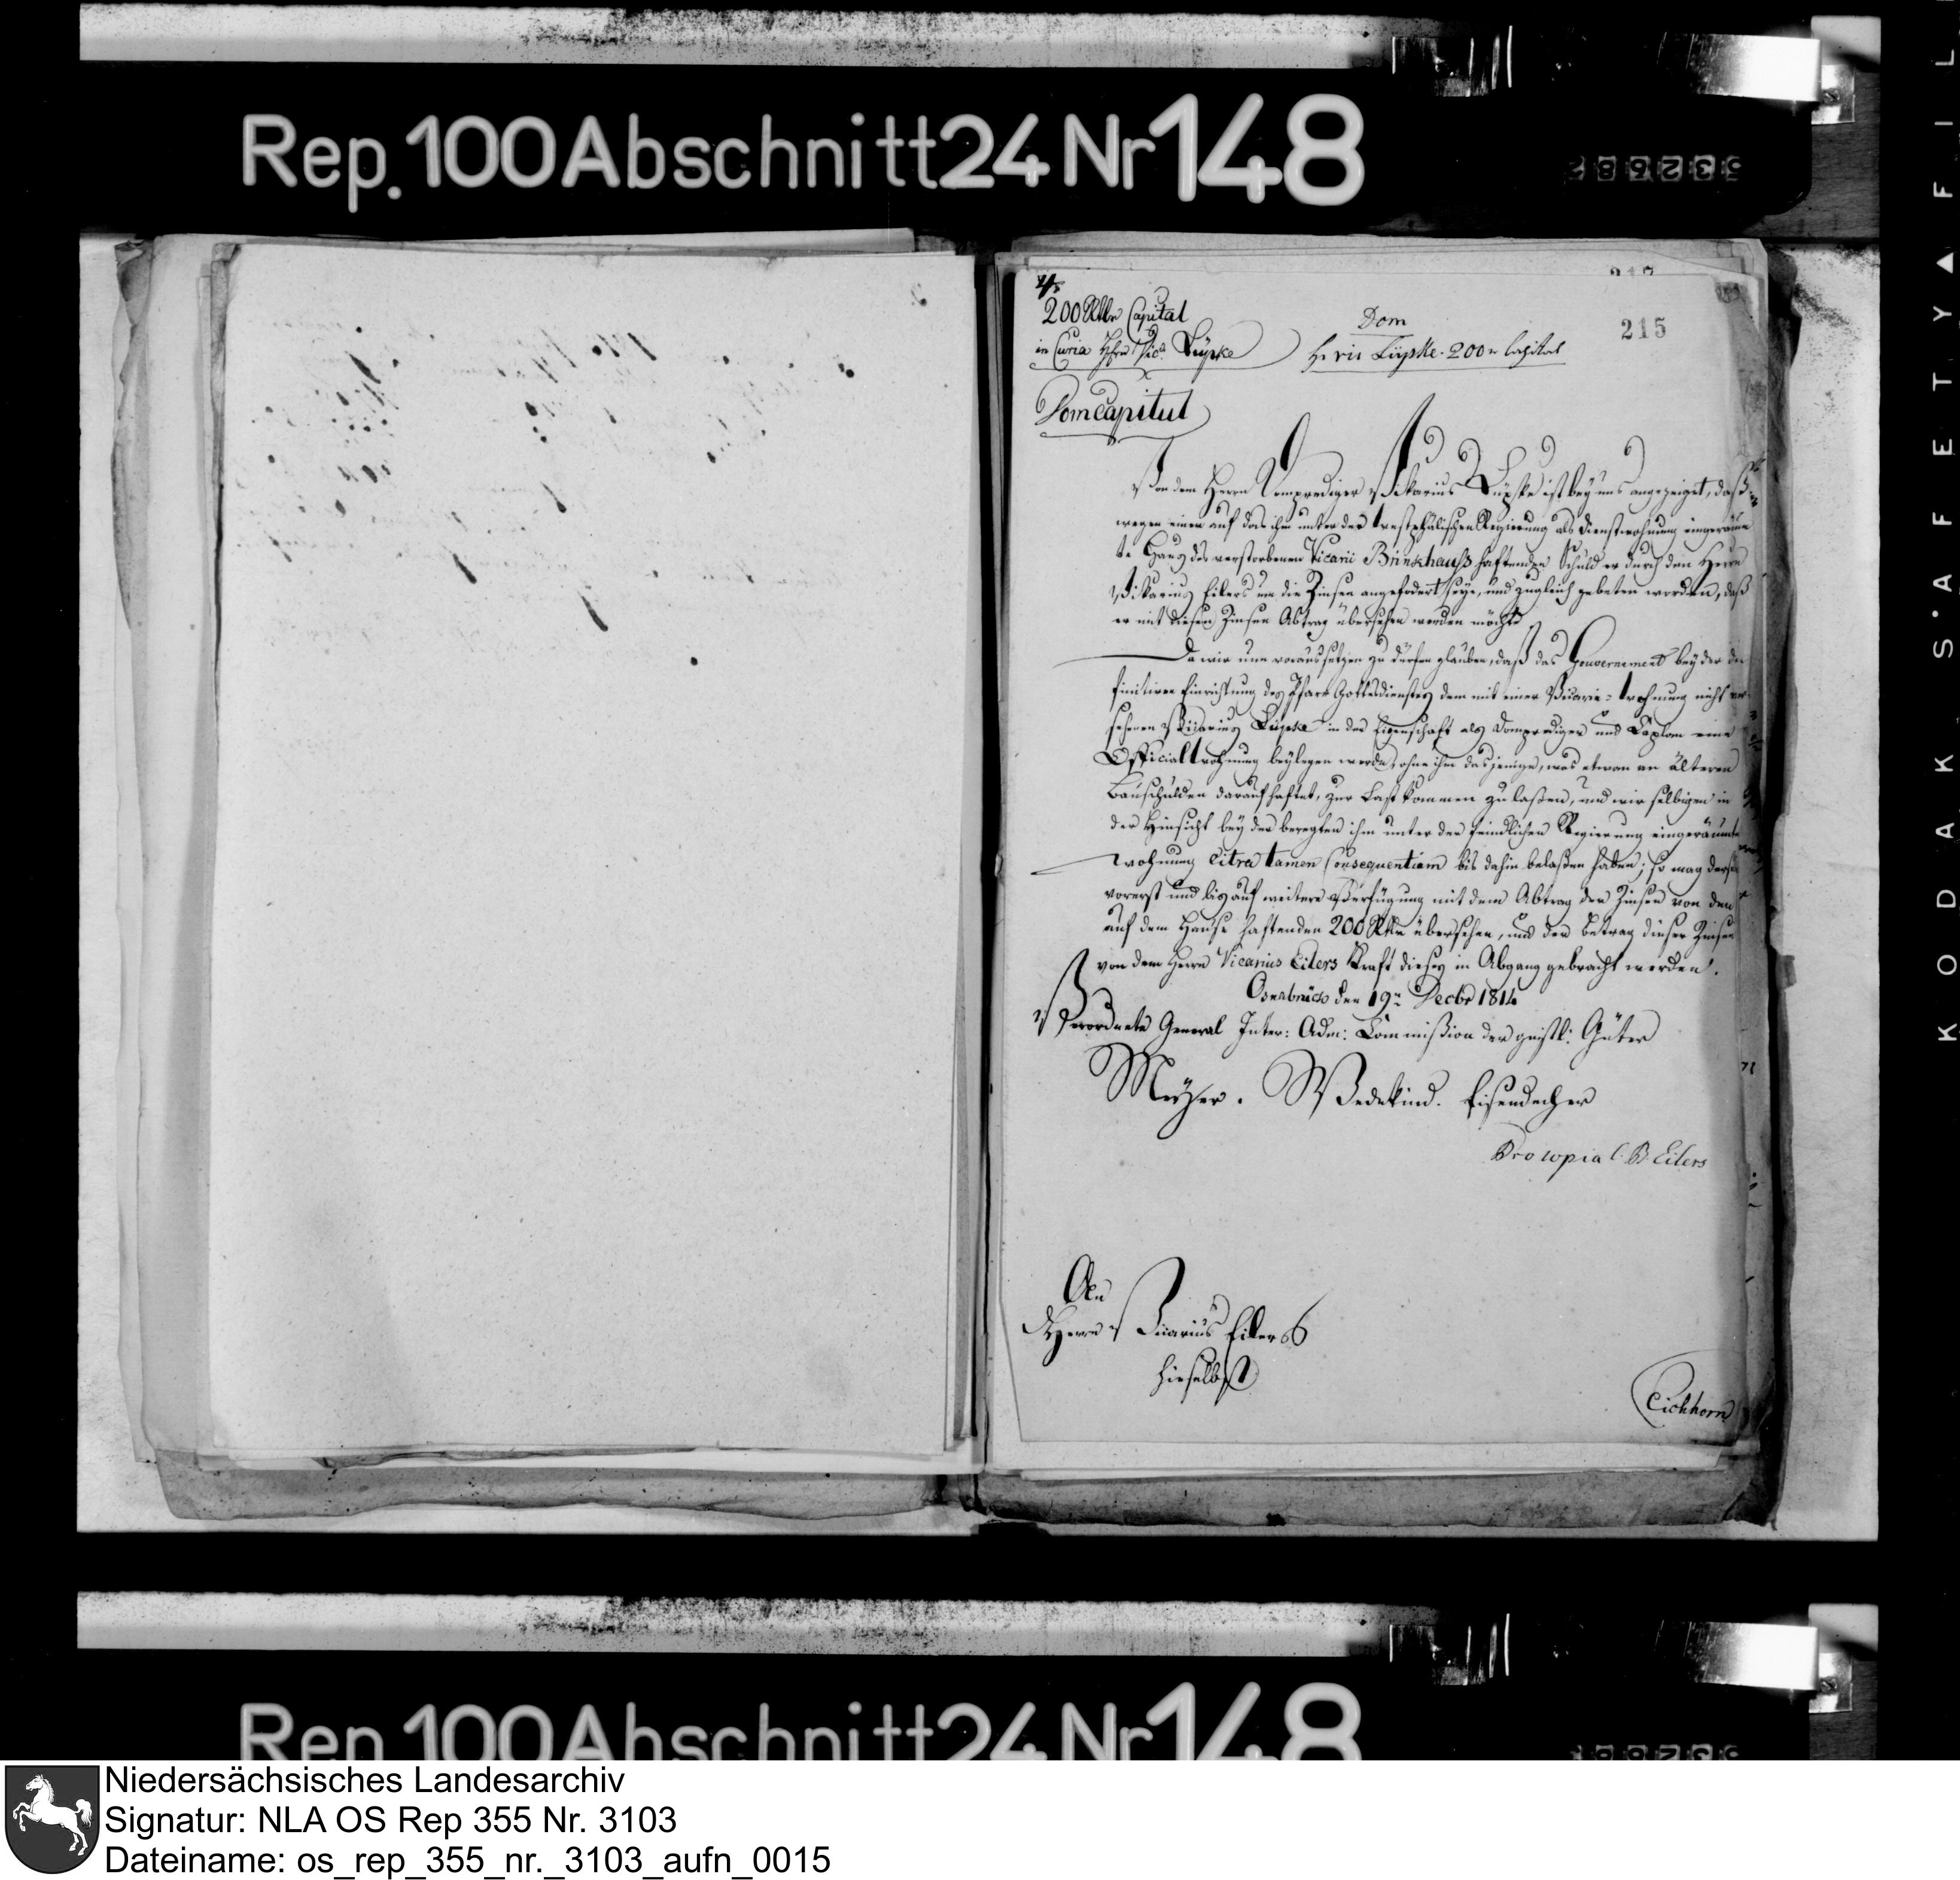 Rep. 100 Abschnitt 24 Nr 148
532682
KODAK SAFETY ▲ FIL
217
215
200 Rthlr Capital
in Curia Hrn Vic: Lüpke
Dom
H. vic Lüpke. 200 r Capital
Domcapitul
Von dem Herrn Domprediger Vikarius Lüpke ist bey uns angezeiget, daß
wegen einer auf das ihm unter der westphälischen Regierung als Dienstwohnung eingeräum
te Haus des verstorbenen Vicarii Brinkhauß haftenden Schuld er durch den Herrn
Vikarius Eilers um die Zinsen angefodert seye, und zugleich gebeten worden, daß
er mit diesen Zinsen Abtrag übersehen werden möchte
Da wir nun voraussetzen zu dürfen glauben, daß das Gouvernement bey der de
finitiven Einrichtung des Pfarr Gottesdienstes dem mit einer Vicarie-Wohnung nicht ver
sehenen Vicarius Lüpke in der Eigenschaft als Domprediger und Caplan eine
Official Wohnung beylegen werde, ohne ihm dasjenige, was etwan an älteren
Bauschulden darauf haftet, zur Last kommen zu laßen, und wir selbigen in
der Hinsicht bey der beregten ihm unter der feindlichen Regierung eingeräumte
Wohnung citra tamen Consequentiam bis dahin belaßen haben; so mag derse
vorerst und bis auf weitere Verfügung mit dem Abtrag der Zinsen von den
auf dem Hause haftenden 200 Rthlr übersehen, und der Betrag dieser Zinsen
von dem Herrn Vicarius Eilers Kraft dieses in Abgang gebracht werden.
Osnabrück den 19n Decbr 1814
Verordnete General Inter: Adm: Commißion der geistl: Güter
Meyer. Wedekind. Eisendecher
Pro copia C. B. Eilers
An
Herrn Vicarius Eilers
hieselbst
Eichhorn
Rep. 100 Abschnitt 24 Nr 148
Niedersächsisches Landesarchiv
Signatur: NLA OS Rep 355 Nr. 3103
Dateiname: os_rep_355_nr._3103_aufn_0015